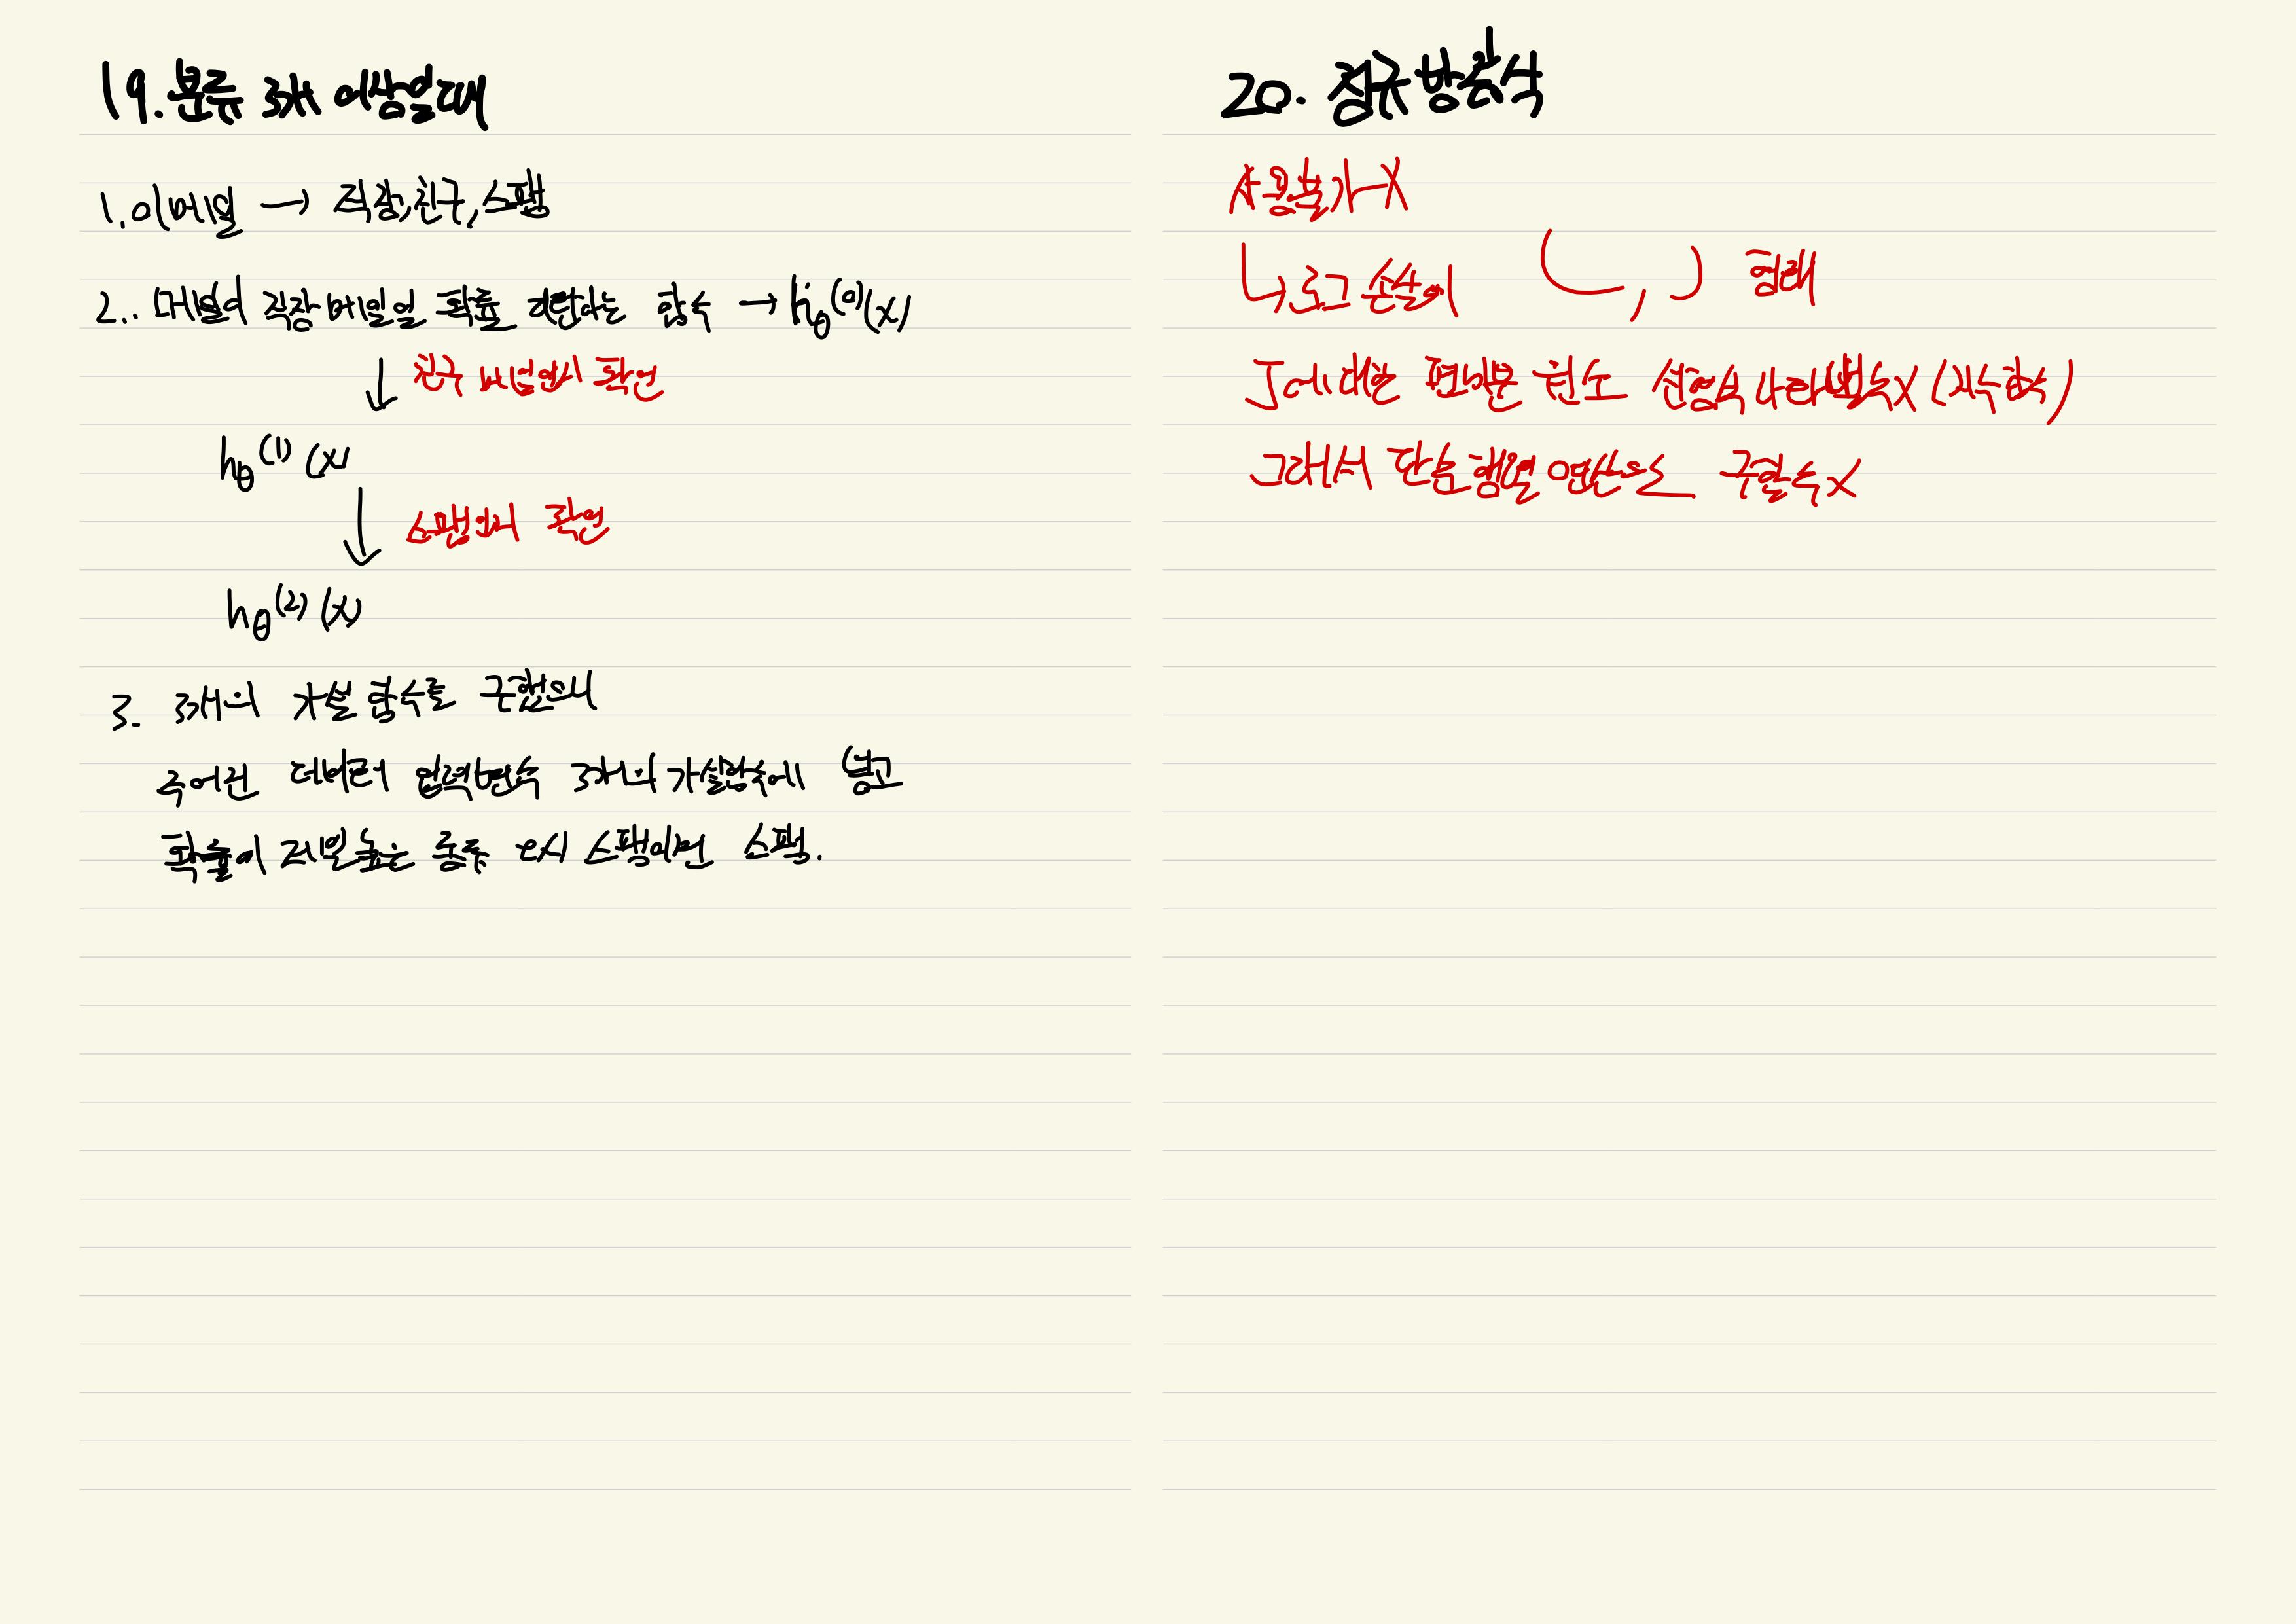 19. 분류 3개 이상일때
1. 이메일 → 직장, 친구, 스팸
2. 메일이 직장 메일일 확률 리턴하는 함수 → hθ(0)(x)
↓ 친구 메일인지 확인
hθ(1)(x)
↓ 스팸인지 확인
hθ(2)(x)
3. 3개의 가설 함수를 구했으니
주어진 데이터 입력변수 3개의 가설함수에 넣고
확률이 제일 높은 종류 이 스팸이면 스팸.
20. 정규방정식
사용불가 X
↳ 로그 손실에 형태
J에 대한 편미분 원소 선형식 나타낼수X (지수함수)
그래서 단순 행렬 연산으로 구할수X